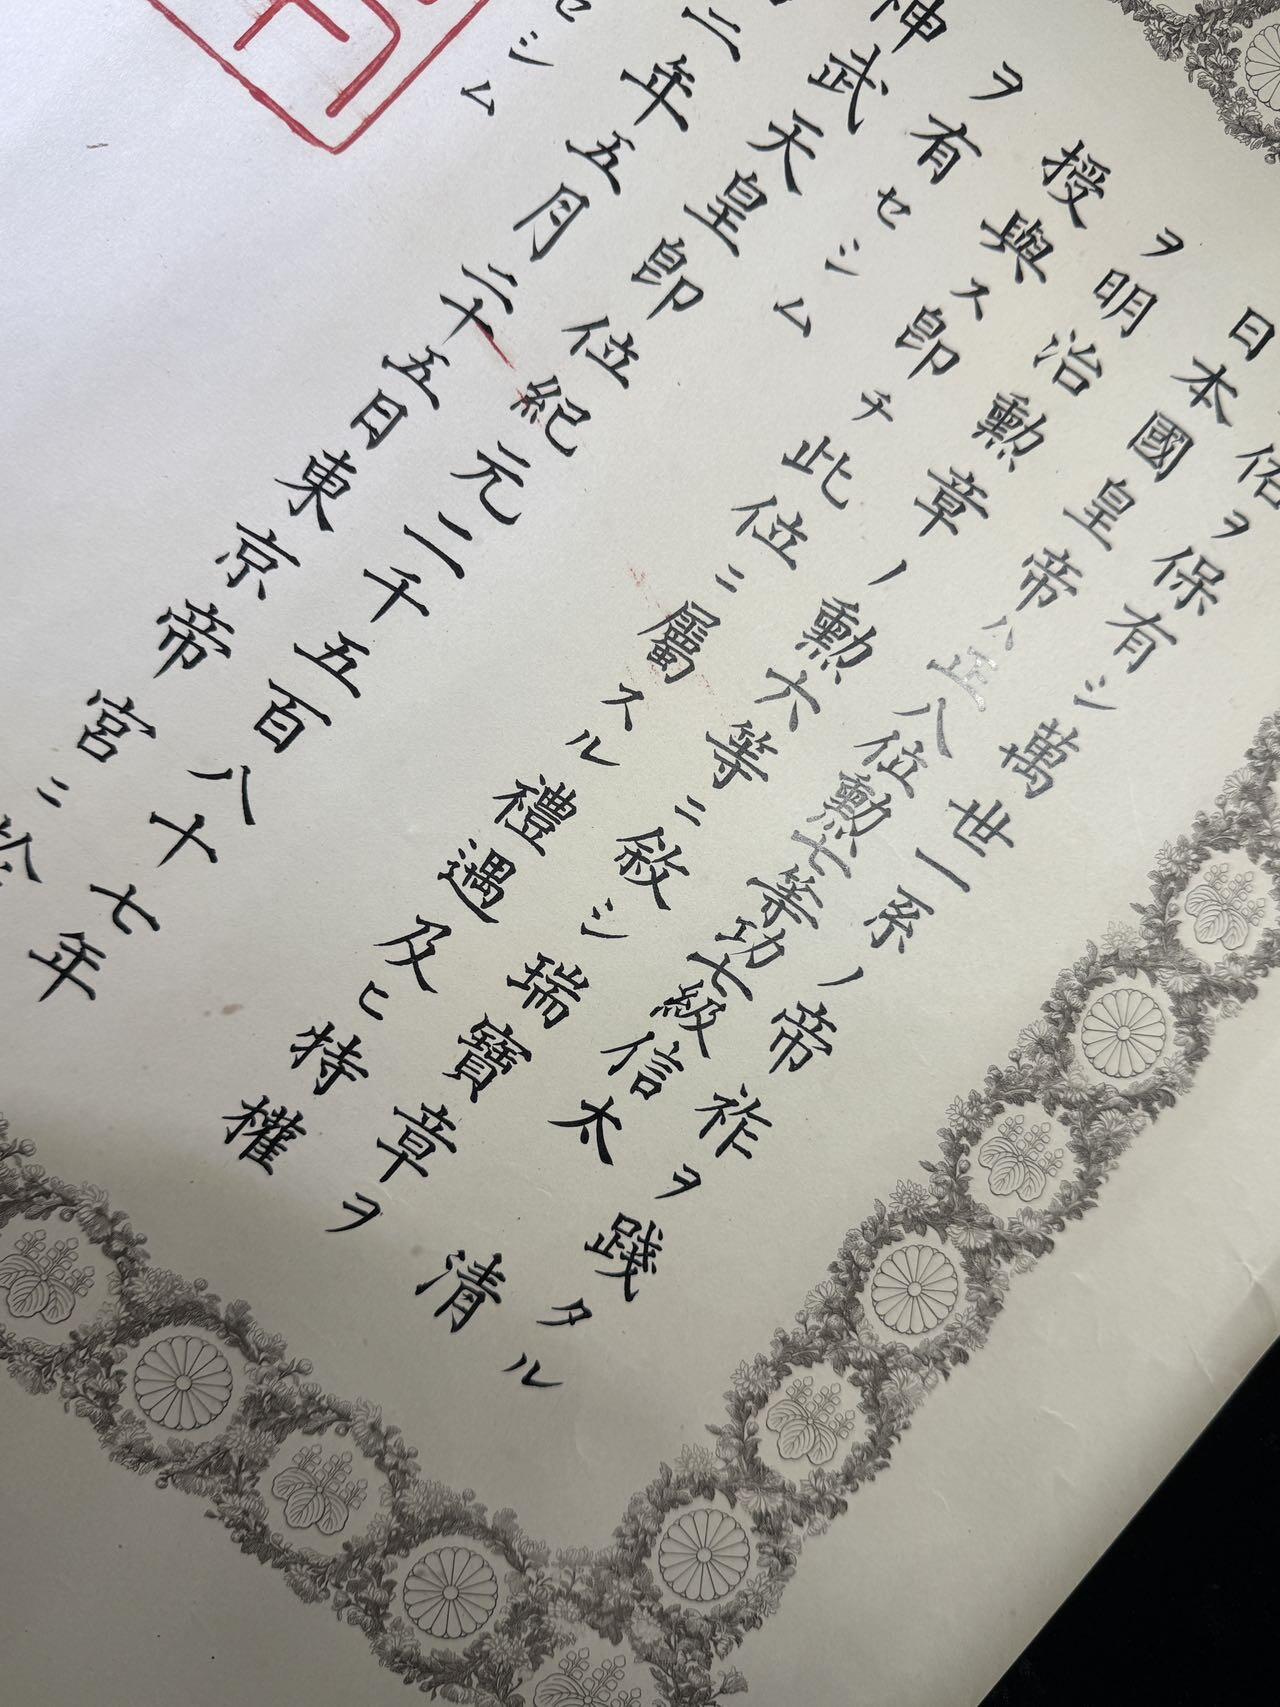 佑ヲ保有シ萬世一系ノ帝祚ヲ踐タル
日本國皇帝ハ正八位勳七等功七級信太清
ヲ明治勳章ノ勳六等ニ敍シ瑞寶章ヲ
授與ス即チ此位ニ屬スル禮遇及ヒ特權
ヲ有セシム
神武天皇即位紀元二千五百八十七年
二年五月二十五日東京帝宮ニ
セシム